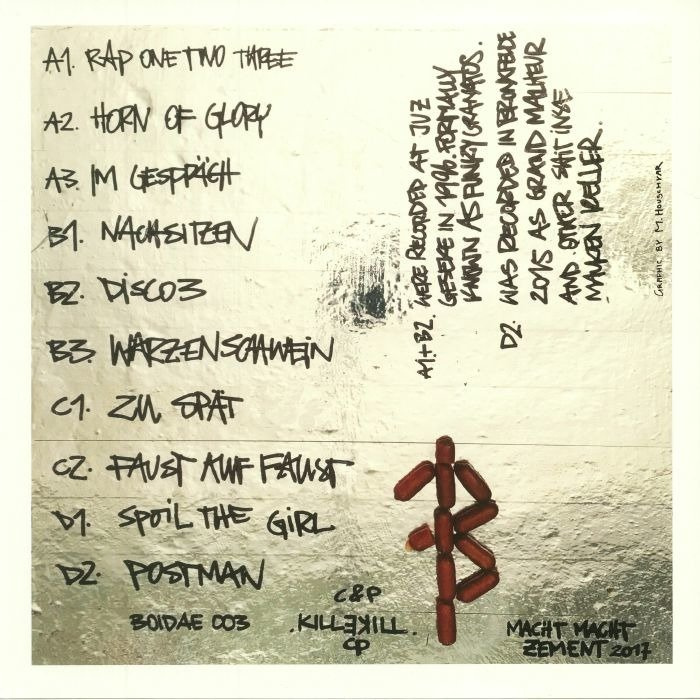 A1. RAP ONE TWO THREE
A2. HORN OF GLORY
A3. IM GESPRÄCH
B1. NACHSITZEN
B2. DISCO3
B3. WARZENSCHWEIN
C1. ZU SPÄT
C2. FAUST AUF FAUST
D1. SPOIL THE GIRL
D2. POSTMAN
BOIDAE 003
C&P
.KILLEKILL.
CP
MACHT MACHT
ZEMENT 2017
A1.+B2. WERE RECORDED AT JUZ
GESEKE IN 1996. FORMALLY
KNOWN AS FUNKY GRANATOS.
D2. WAS RECORDED IN
2015 AS GRAND MALHEUR
AND OTHER SHIT
KELLER.
GRAPHIC BY M.